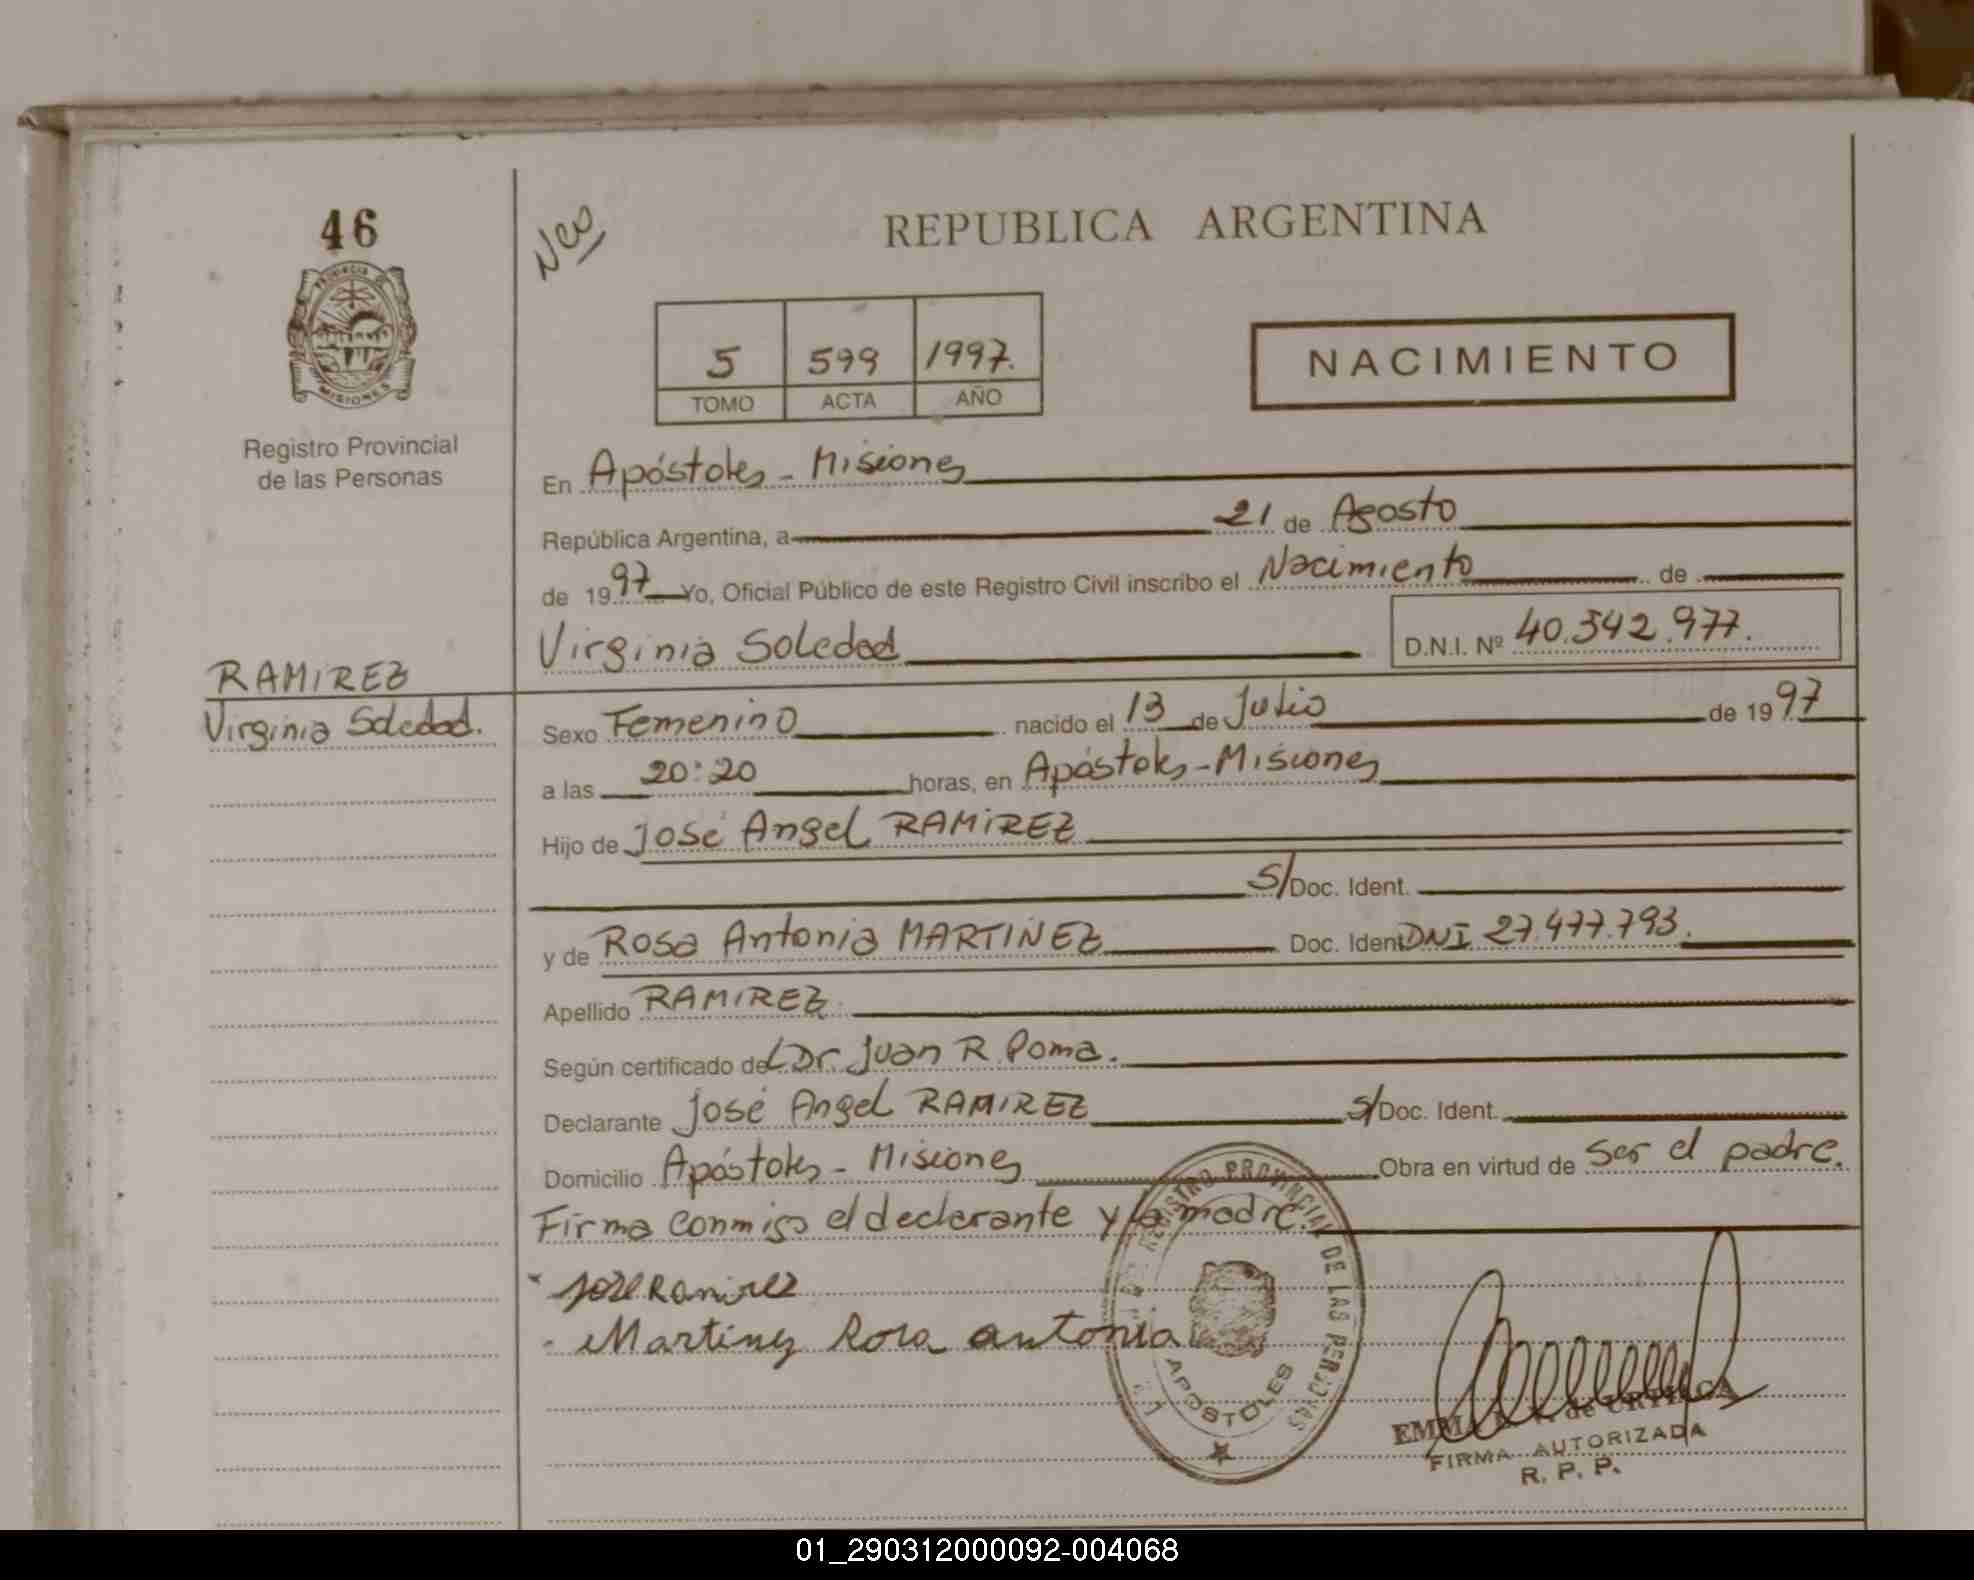 46
PROVINCIA DE
MISIONES
Registro Provincial
de las Personas
RAMIREZ
Virginia Soledad.
REPUBLICA ARGENTINA
5 599 1997.
TOMO ACTA AÑO
NACIMIENTO
En Apóstoles - Misiones
República Argentina, a 21 de Agosto
de 1997 Yo, Oficial Público de este Registro Civil inscribo el Nacimiento de
Virginia Soledad D.N.I. Nº 40.342.977.
Sexo Femenino nacido el 13 de Julio de 1997
a las 20:20 horas, en Apóstoles - Misiones
Hijo de José Angel RAMIREZ
S/Doc. Ident.
y de Rosa Antonia MARTINEZ Doc. Ident DNI 27.477.793.
Apellido RAMIREZ
Según certificado del Dr. Juan R. Poma.
Declarante José Angel RAMIREZ S/Doc. Ident.
Domicilio Apóstoles - Misiones Obra en virtud de ser el padre.
Firma conmigo el declarante y la madre.
José Ramirez
Martinez Rosa antonia
REGISTRO PROVINCIAL DE LAS PERSONAS
APOSTOLES
EMMA de
FIRMA AUTORIZADA
R. P. P.
01_290312000092-004068